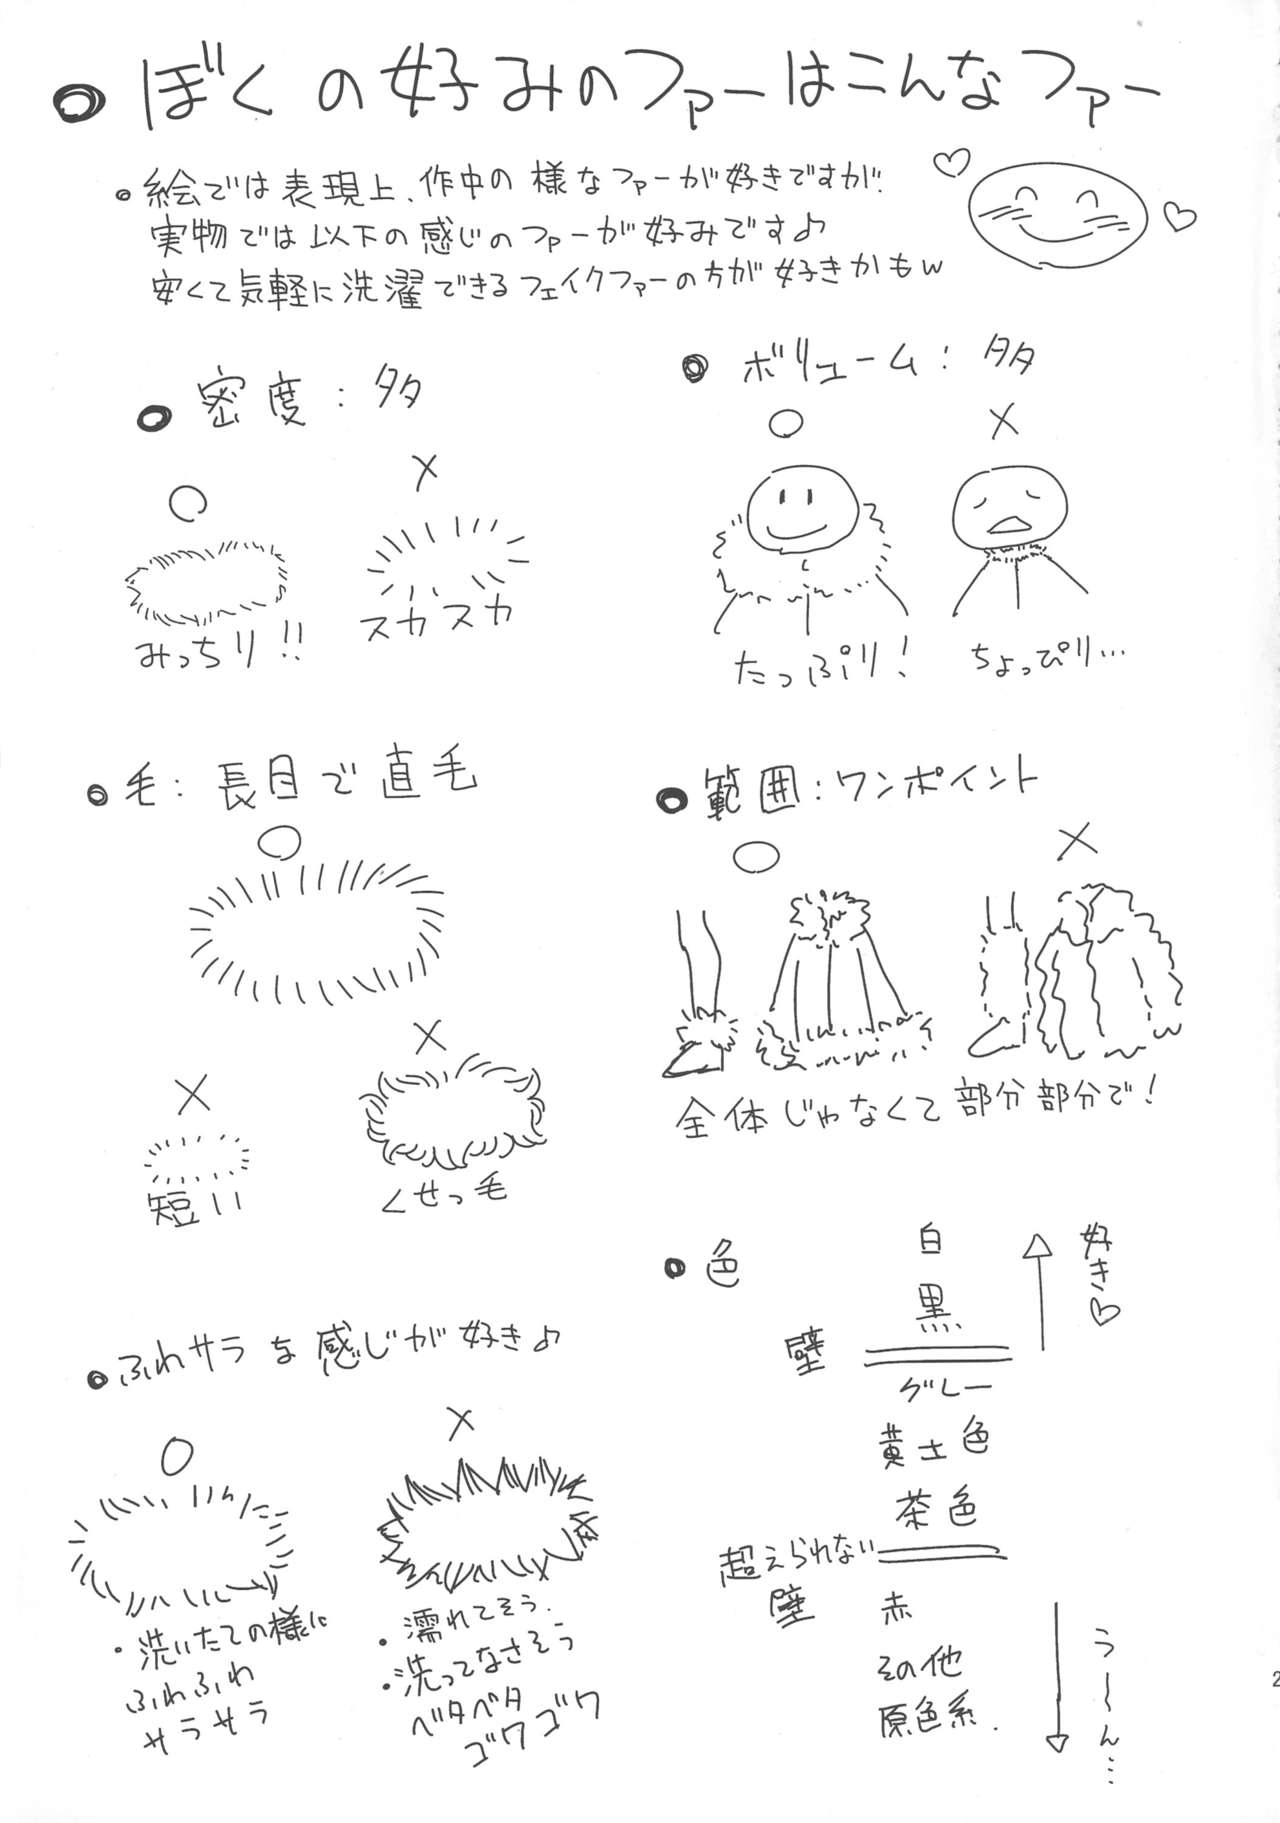 ぼくの好みのファーはこんなファー
絵では表現上、作中の様なファーが好きですが
実物では以下の感じのファーが好みです♪
安くて気軽に洗濯できるフェイクファーの方が好きかもw
密度：多
○
×
みっちり!!
スカスカ
ボリューム：多
○
×
たっぷり！
ちょっぴり…
毛：長目で直毛
○
×
×
短い
くせっ毛
範囲：ワンポイント
○
×
全体じゃなくて部分部分で！
ふわサラな感じが好き♪
○
×
・洗いたての様に
ふわふわ
サラサラ
・濡れてそう．
・洗ってなさそう
ベタベタ
ゴワゴワ
色
白
黒
好き♡
壁
グレー
黄土色
茶色
超えられない
壁
赤
その他
原色系．
う〜ん…
2